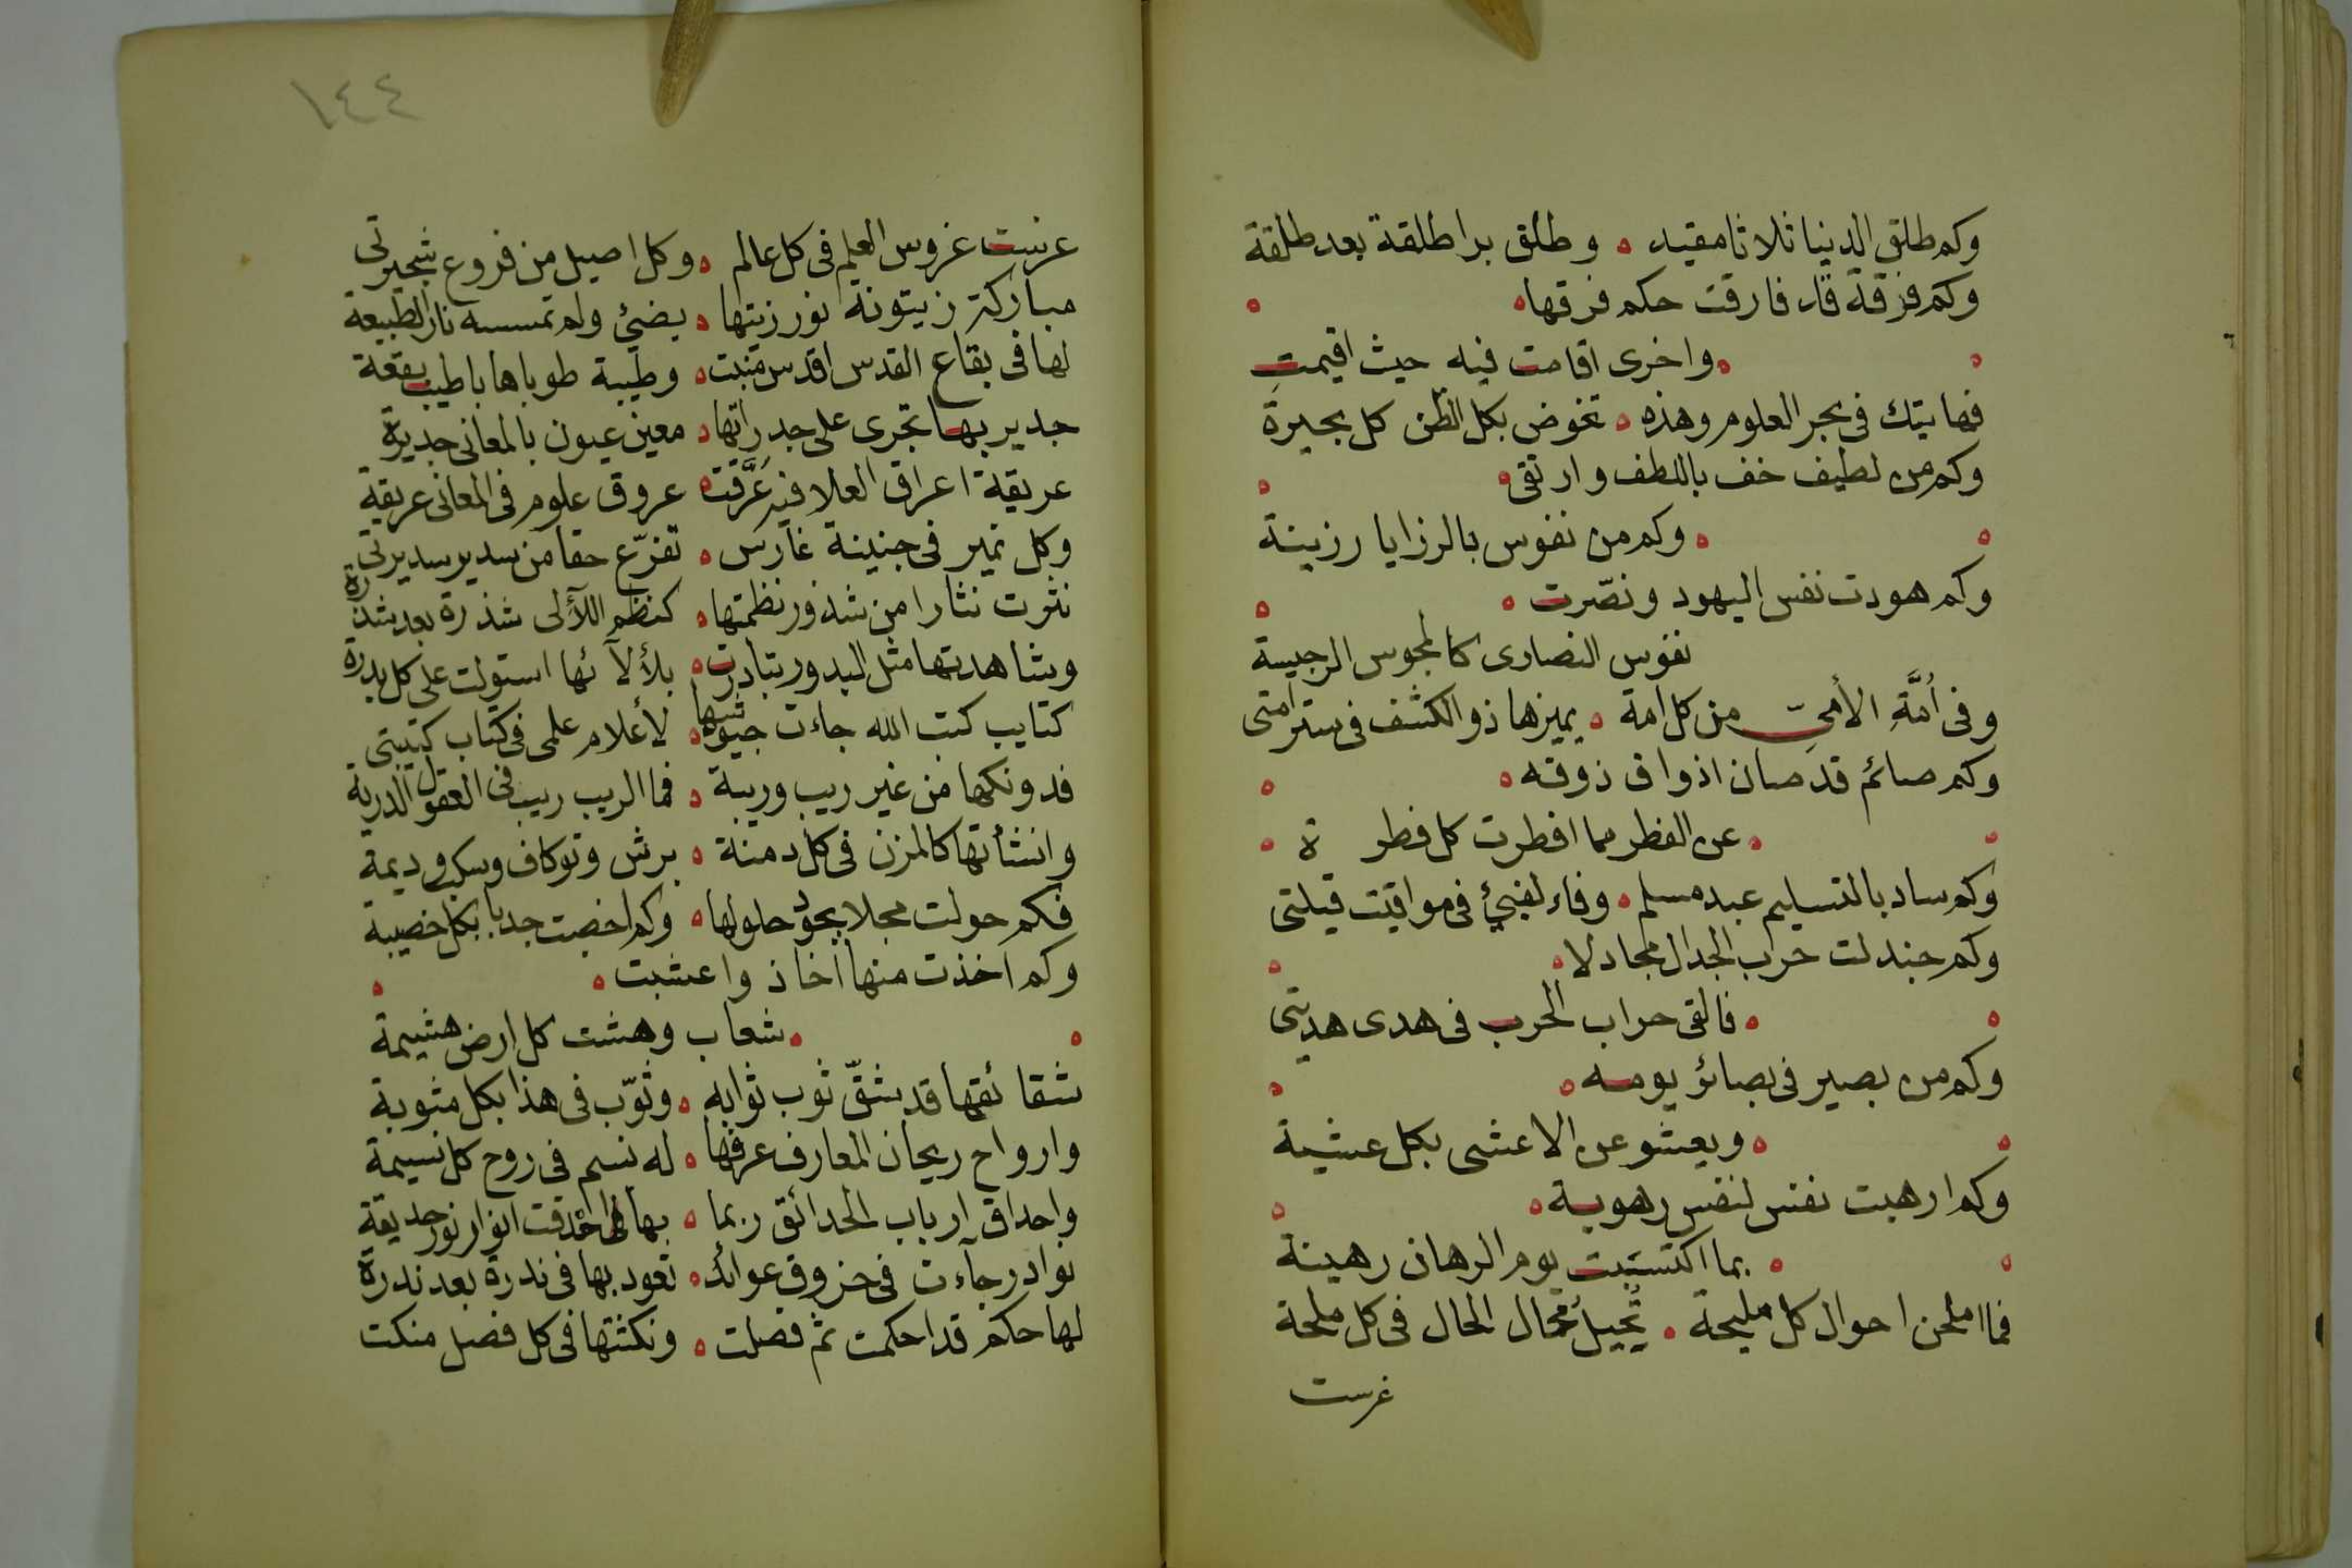 وكم طلق الدنيا ثلاثا مقيد ه وطلق برا طلقة بعد طلقة
وكم فرقة قد فارقت حكم فرقها ه
ه واخرى اقامت فيه حيث اقيمت
فهاتيك فى بحر العلوم وهذه ه تخوض بكل الظن كل بحيرة
وكم من لطيف خف باللطف وارتقى ه
ه وكم من نفوس بالرزايا رزينة
وكم هودت نفس اليهود ونصّرت ه
نفوس النصارى كالمجوس الرجيسة
وفى أمَّةِ الأمىّ من كل امة ه يميزها ذو الكشف فى ستر امتى
وكم صائم قد صان اذواق ذوقه ه
ه عن الفطر مما افطرت كل فطرة
وكم ساد بالتسليم عبد مسلم ه وفاء لفيئ فى مواقيت قبلتى
وكم جندلت حرب الجدال مجادلا ه
ه فالقى حراب الحرب فى هدى هديتى
وكم من بصير فى بصائر يومه ه
ه ويعشو عن الاعشى بكل عشية
وكم ارهبت نفس لنفس رهوبة ه
ه بما اكتسبت يوم الرهان رهينة
فما املحن احوال كل مليحة ه تُحيلُ محال الحال فى كل ملحة
غرست
١٤٤
غرست غروس العلم فى كل عالم ه وكل اصيل من فروع شجيرتى
مباركة زيتونة نور زيتها ه يضئ ولم تمسسه نار الطبيعة
لها فى بقاع القدس اقدس منبت ه وطيبة طوباها باطيب بقعة
جدير بها تجرى على جدراتها ه معين عيون بالمعانى جديرة
عريقة اعراق العلا فيه عَرَّقت ه عروق علوم فى المعانى عريقة
وكل نمير فى جنينة غارس ه تفرّع حقا من سدير سديرتى
نثرت نثارا من شذور نظمتها ه كنظم اللآلى شذرة بعد شذرة
وشاهدتها مثل البدور تبادرت ه بلألآئها استولت على كل بدرة
كتايب كتب الله جاءت جيوشها ه لأعلام علمى فى كتاب كتيبتى
فدونكها من غير ريب وريبة ه فما الريب ريب فى العقول الدرية
وانشأتها كالمزن فى كل دمنة ه برش وتوكاف وسكب وديمة
فكم حولت محلا بجود حلولها ه وكم اخصبت جدبا بكل خصيبة
وكم اخذت منها أخاذ واعشبت ه
ه شعاب وهشت كل ارض هشيمة
شقائقها قد شقّ ثوب ثوابه ه وثوّب فى هذا بكل مثوبة
وارواح ريحان المعارف عرفها ه له نسم فى روح كل نسيمة
واحداق ارباب الحدائق ربما ه بها احدقت انوار نور حديقة
نوادر جآءت فى خروق عوائد ه تعود بها فى ندرة بعد ندرة
لها حكم قد احكمت ثم فصلت ه ونكتتها فى كل فصل منكت